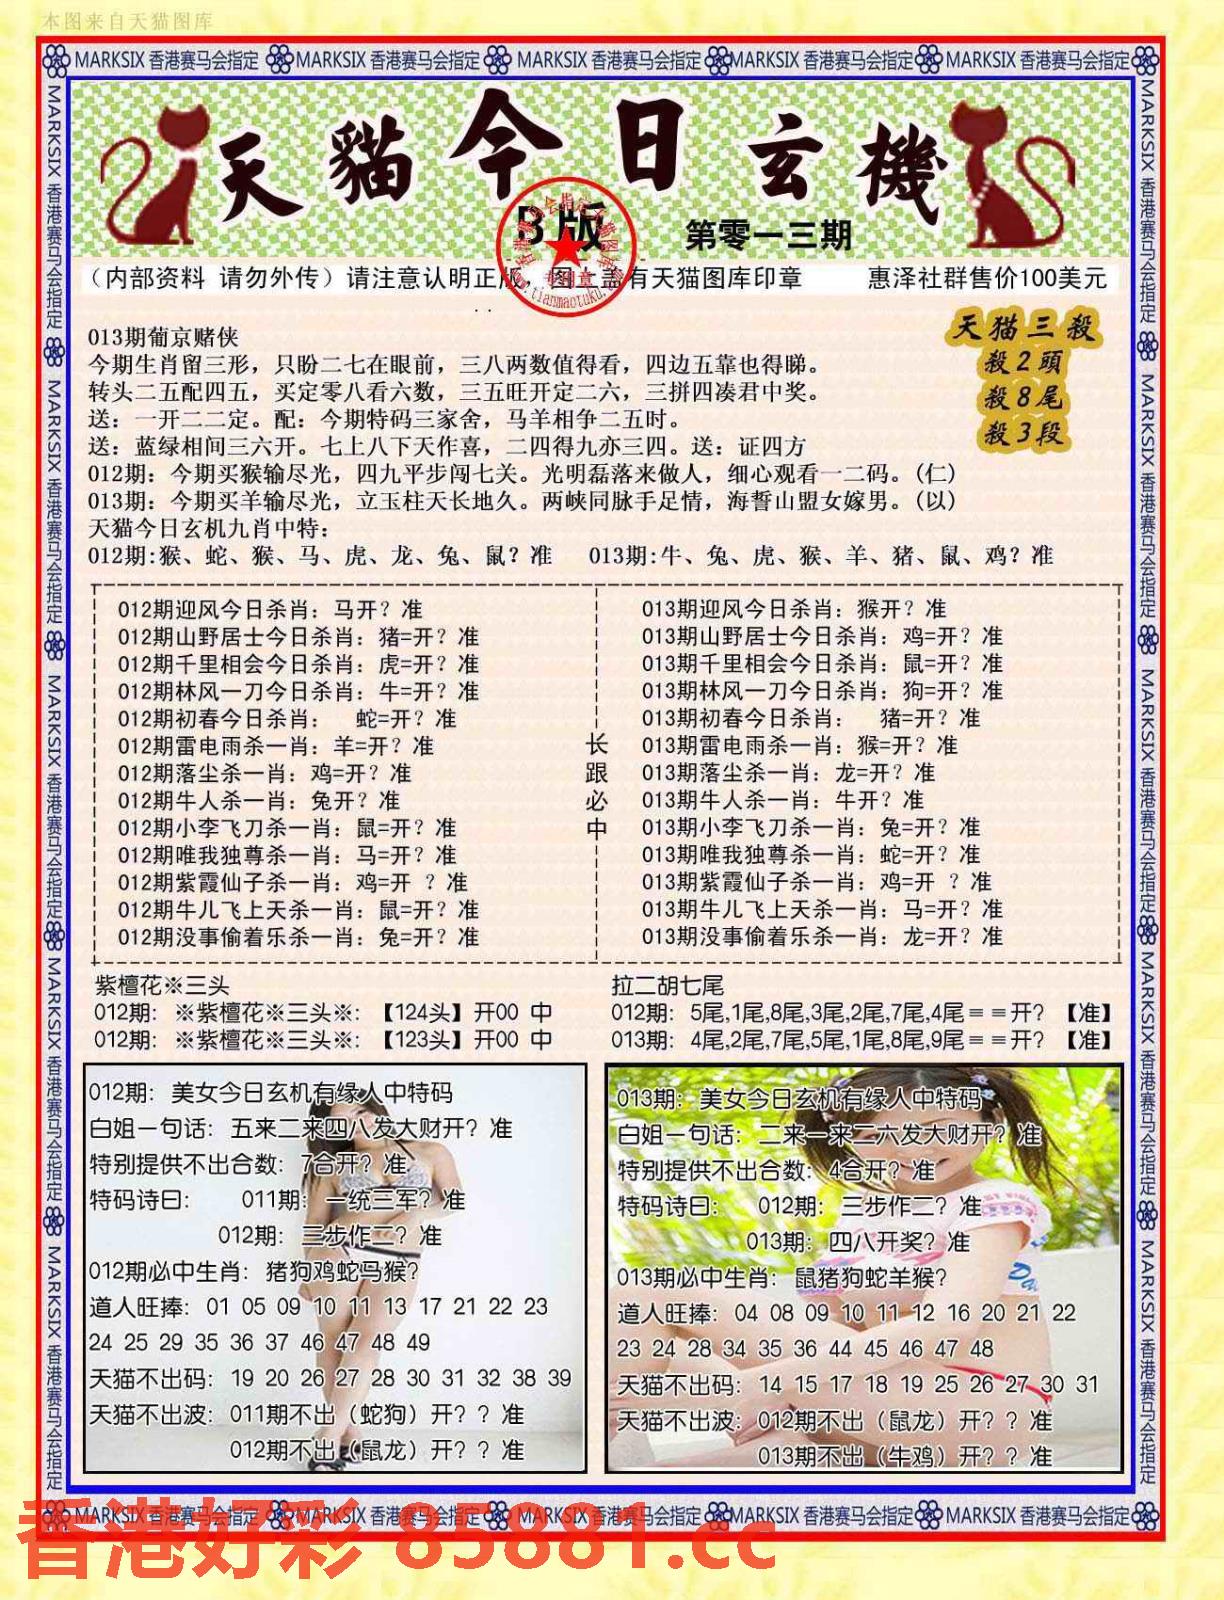 本图来自天猫图库
MARKSIX 香港赛马会指定 MARKSIX 香港赛马会指定 MARKSIX 香港赛马会指定 MARKSIX 香港赛马会指定 MARKSIX 香港赛马会指定
天貓今日玄機
B版
第零一三期
（内部资料 请勿外传）请注意认明正版 图上盖有天猫图库印章 惠泽社群售价100美元
013期葡京赌侠
今期生肖留三形，只盼二七在眼前，三八两数值得看，四边五靠也得睇。
转头二五配四五，买定零八看六数，三五旺开定二六，三拼四凑君中奖。
送：一开二二定。配：今期特码三家舍，马羊相争二五时。
送：蓝绿相间三六开。七上八下天作喜，二四得九亦三四。送：证四方
012期：今期买猴输尽光，四九平步闯七关。光明磊落来做人，细心观看一二码。(仁)
013期：今期买羊输尽光，立玉柱天长地久。两峡同脉手足情，海誓山盟女嫁男。(以)
天猫今日玄机九肖中特：
012期:猴、蛇、猴、马、虎、龙、兔、鼠？准 013期:牛、兔、虎、猴、羊、猪、鼠、鸡？准
天猫三殺
殺2頭
殺8尾
殺3段
012期迎风今日杀肖：马开？准
012期山野居士今日杀肖：猪=开？准
012期千里相会今日杀肖：虎=开？准
012期林风一刀今日杀肖：牛=开？准
012期初春今日杀肖： 蛇=开？准
012期雷电雨杀一肖：羊=开？准
012期落尘杀一肖：鸡=开？准
012期牛人杀一肖：兔开？准
012期小李飞刀杀一肖：鼠=开？准
012期唯我独尊杀一肖：马=开？准
012期紫霞仙子杀一肖：鸡=开 ？准
012期牛儿飞上天杀一肖：鼠=开？准
012期没事偷着乐杀一肖：兔=开？准
长跟必中
013期迎风今日杀肖：猴开？准
013期山野居士今日杀肖：鸡=开？准
013期千里相会今日杀肖：鼠=开？准
013期林风一刀今日杀肖：狗=开？准
013期初春今日杀肖： 猪=开？准
013期雷电雨杀一肖：猴=开？准
013期落尘杀一肖：龙=开？准
013期牛人杀一肖：牛开？准
013期小李飞刀杀一肖：兔=开？准
013期唯我独尊杀一肖：蛇=开？准
013期紫霞仙子杀一肖：鸡=开 ？准
013期牛儿飞上天杀一肖：马=开？准
013期没事偷着乐杀一肖：龙=开？准
紫檀花※三头
012期：※紫檀花※三头※：【124头】开00 中
012期：※紫檀花※三头※：【123头】开00 中
拉二胡七尾
012期：5尾,1尾,8尾,3尾,2尾,7尾,4尾＝＝开？【准】
013期：4尾,2尾,7尾,5尾,1尾,8尾,9尾＝＝开？【准】
012期：美女今日玄机有缘人中特码
白姐一句话：五来二来四八发大财开？准
特别提供不出合数：7合开？准
特码诗曰： 011期：一统三军？准
012期：三步作二？准
012期必中生肖：猪狗鸡蛇马猴？
道人旺捧：01 05 09 10 11 13 17 21 22 23
24 25 29 35 36 37 46 47 48 49
天猫不出码：19 20 26 27 28 30 31 32 38 39
天猫不出波：011期不出（蛇狗）开？？准
012期不出（鼠龙）开？？准
013期：美女今日玄机有缘人中特码
白姐一句话：二来一来二六发大财开？准
特别提供不出合数：4合开？准
特码诗曰： 012期：三步作二？准
013期：四八开奖？准
013期必中生肖：鼠猪狗蛇羊猴？
道人旺捧：04 08 09 10 11 12 16 20 21 22
23 24 28 34 35 36 44 45 46 47 48
天猫不出码：14 15 17 18 19 25 26 27 30 31
天猫不出波：012期不出（鼠龙）开？？准
013期不出（牛鸡）开？？准
MARKSIX 香港赛马会指定 MARKSIX 香港赛马会指定 MARKSIX 香港赛马会指定 MARKSIX 香港赛马会指定 MARKSIX 香港赛马会指定
香港好彩 85881.cc
MARKSIX 香港赛马会指定 MARKSIX 香港赛马会指定 MARKSIX 香港赛马会指定 MARKSIX 香港赛马会指定 MARKSIX 香港赛马会指定
MARKSIX 香港赛马会指定 MARKSIX 香港赛马会指定 MARKSIX 香港赛马会指定 MARKSIX 香港赛马会指定 MARKSIX 香港赛马会指定